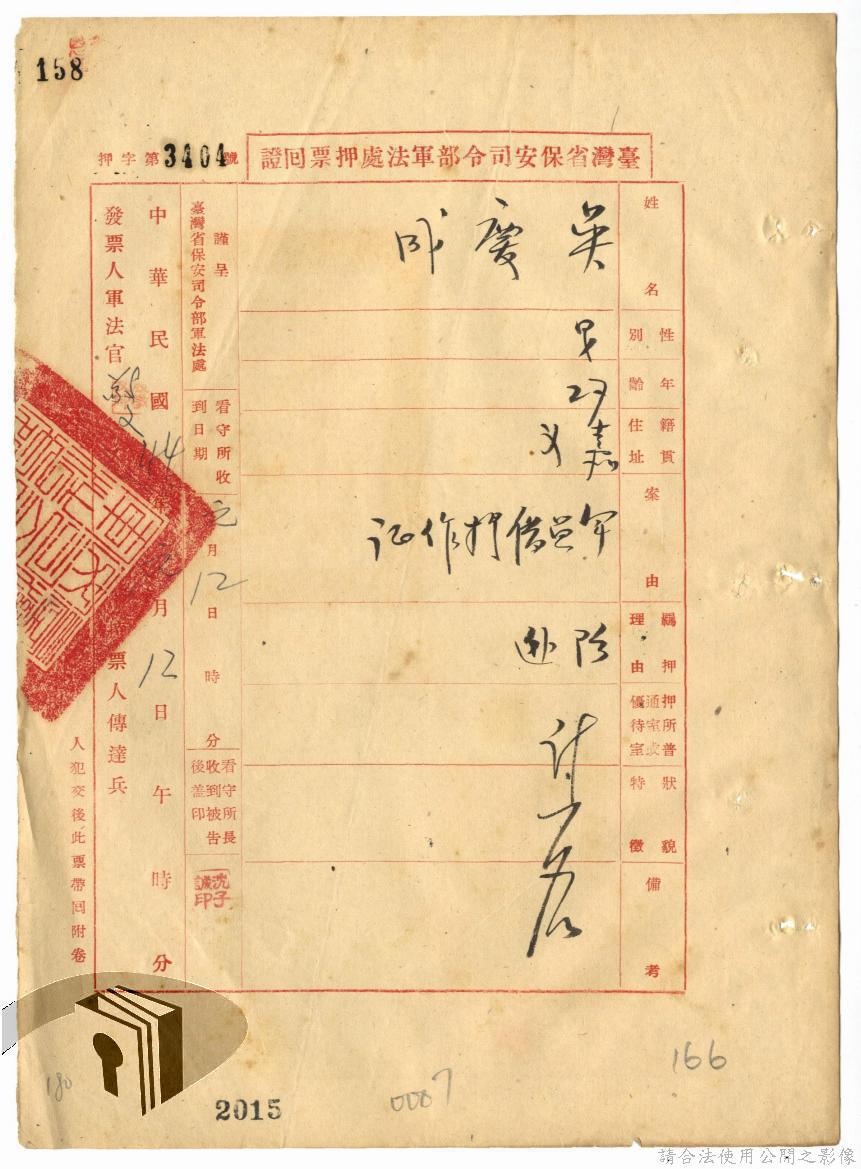 158
臺灣省保安司令部軍法處押票回證
押字第3404號
姓名
吳慶成
性別
男
年齡
籍貫住址
嘉義
案由
羈押理由
押所普通室或優待室
狀貌特徵
備考
謹呈
臺灣省保安司令部軍法處
看守所收到日期
元月12日 時 分
看守所長收到被告後蓋印
沈子誠印
中華民國44年元月12日午時分
發票人軍法官
票人傳達兵
人犯交後此票帶回附卷
180
2015
0007
166
請合法使用公開之影像